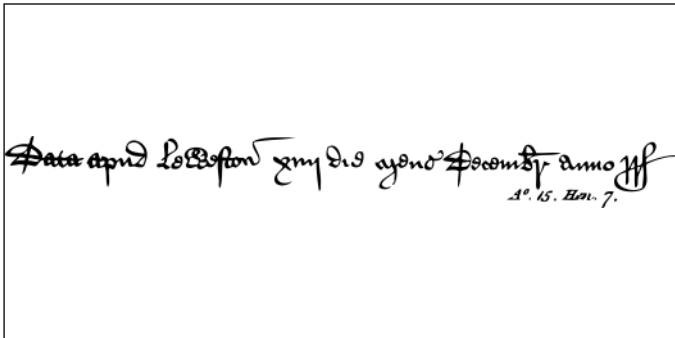 Data apud LeWeston xiiij die mens Decembr anno
A°. 15. Hen. 7.